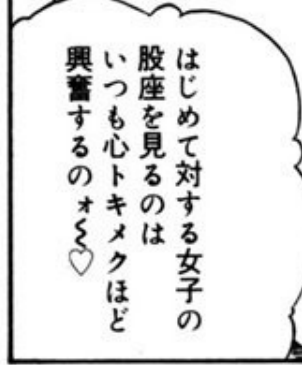 はじめて対する女子の
股座を見るのは
いつも心トキメクほど
興奮するのォ〜♡